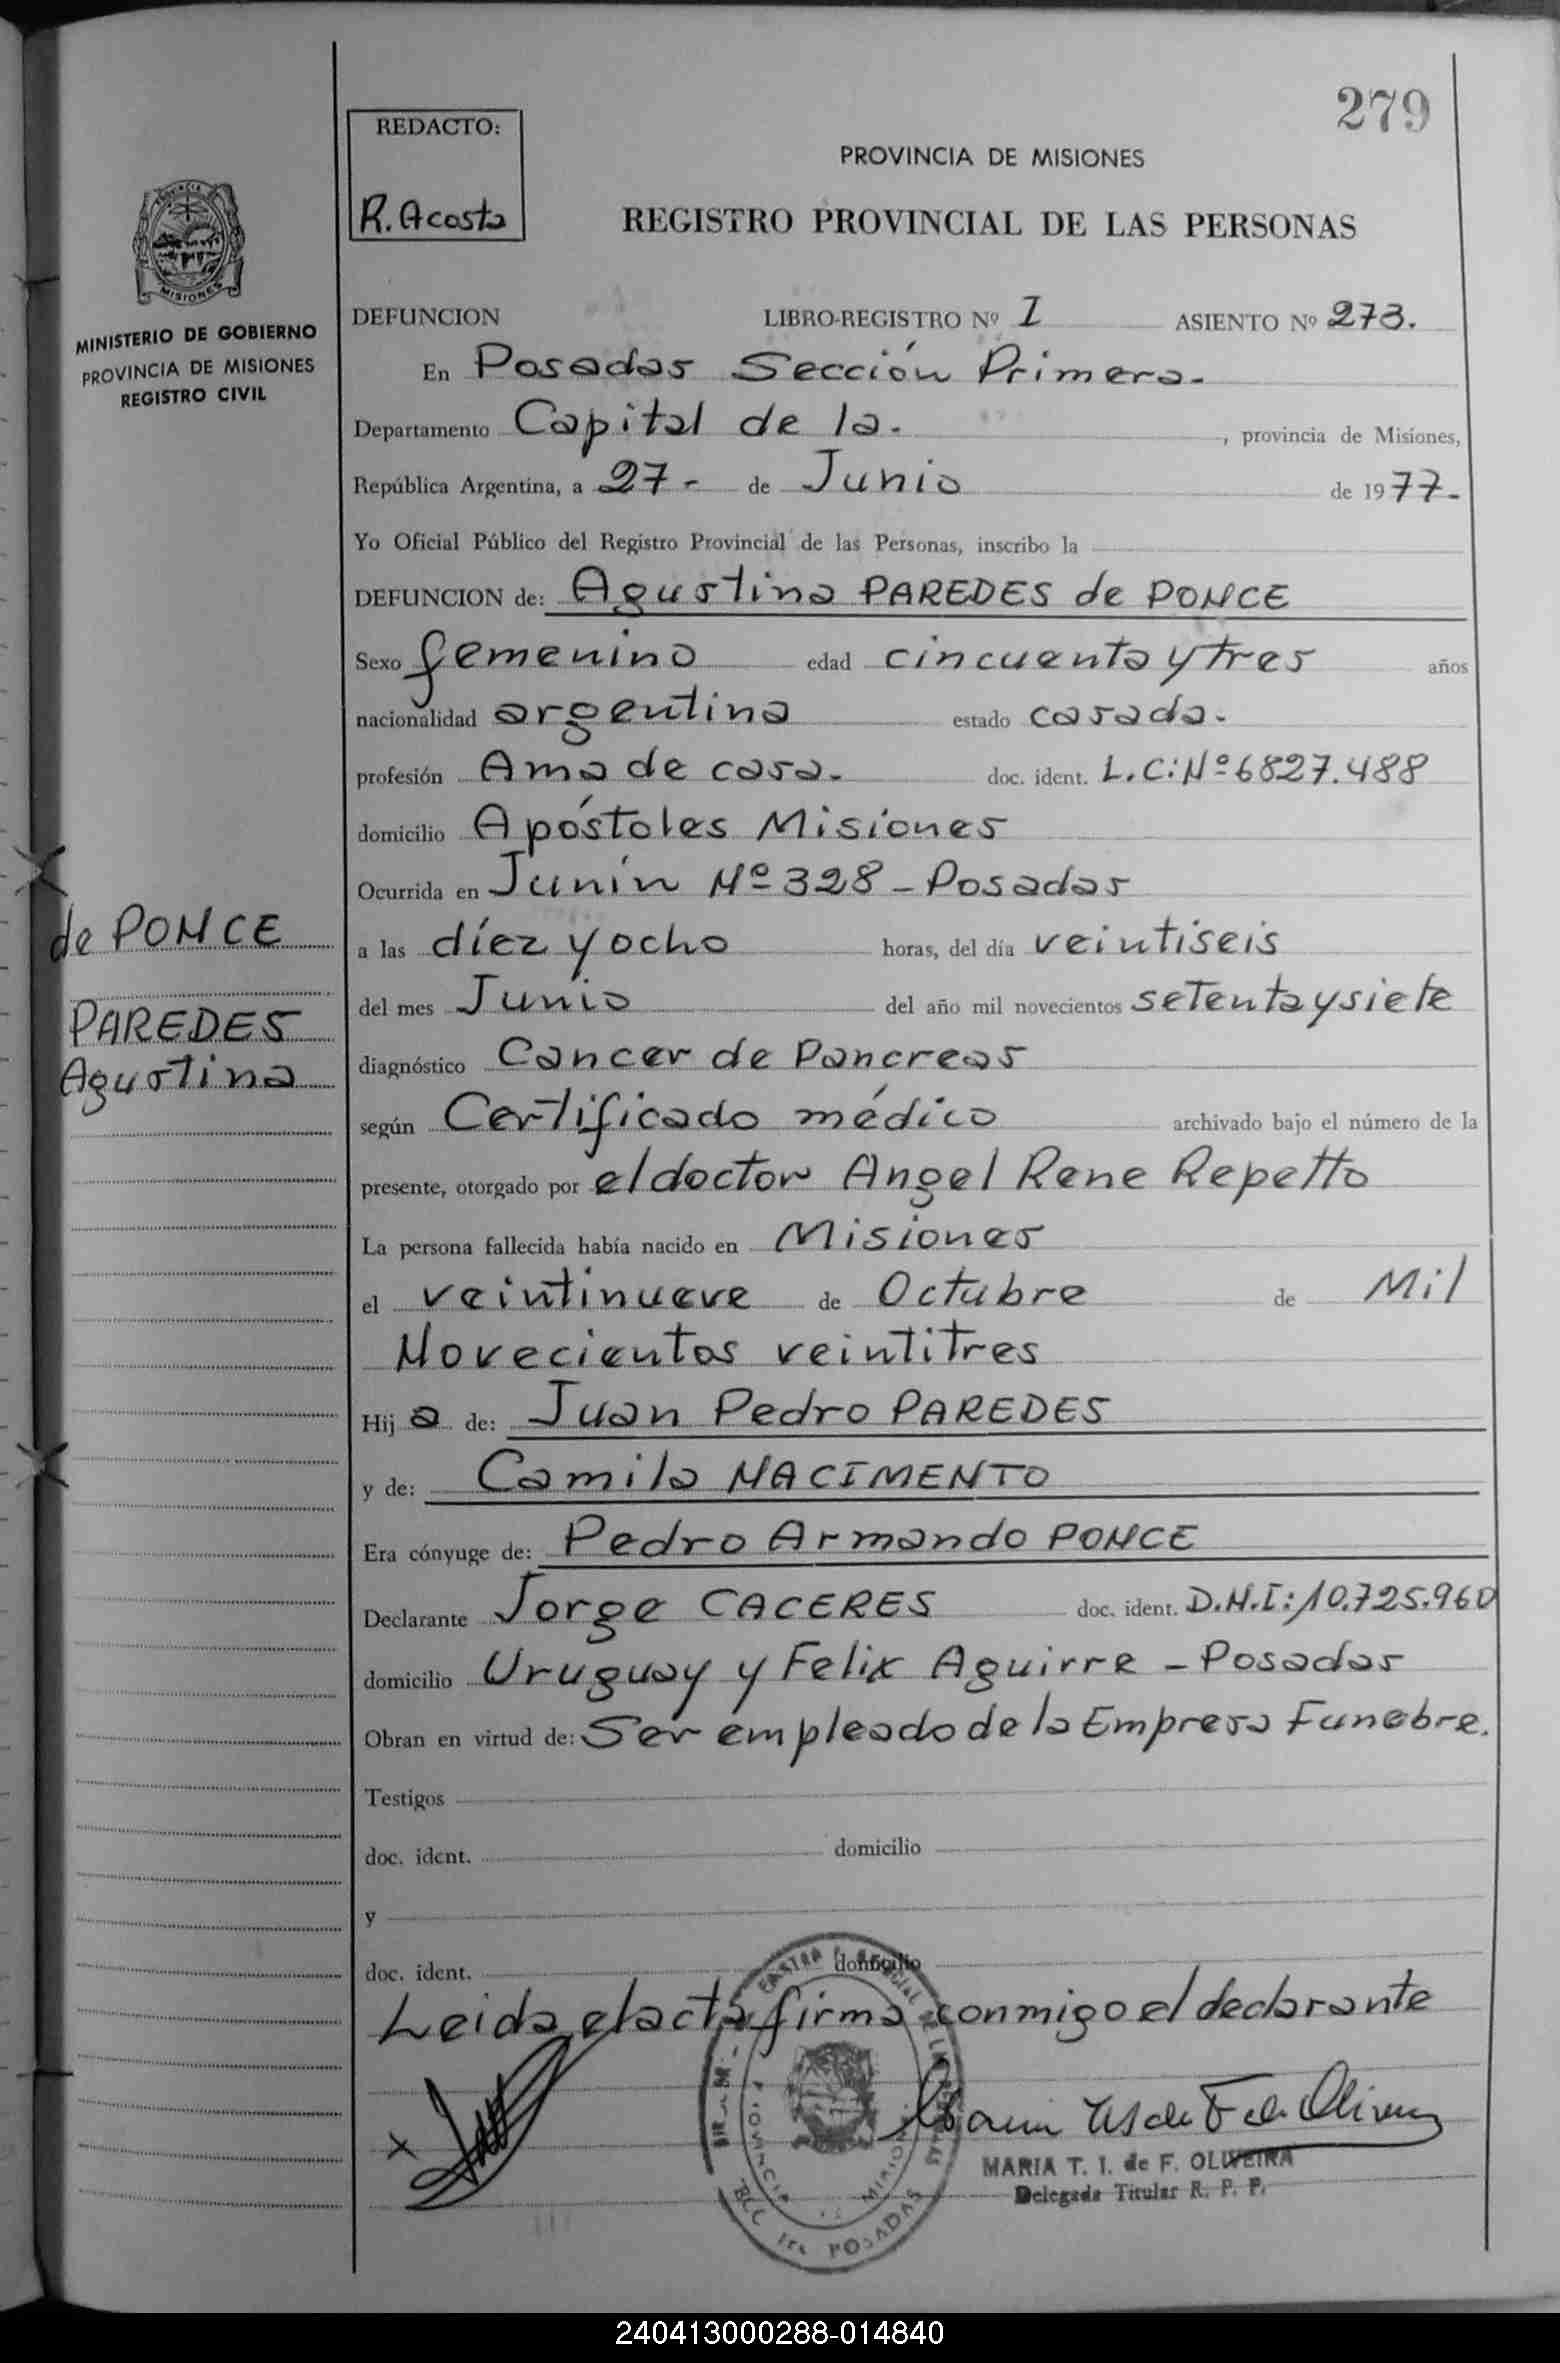 279
REDACTO:
R. Acosta
PROVINCIA DE MISIONES
REGISTRO PROVINCIAL DE LAS PERSONAS
MISIONES
MINISTERIO DE GOBIERNO
PROVINCIA DE MISIONES
REGISTRO CIVIL
DEFUNCION LIBRO-REGISTRO Nº I ASIENTO Nº 273.
En Posadas Sección Primera.
Departamento Capital de la. , provincia de Misiones,
República Argentina, a 27- de Junio de 1977-
Yo Oficial Público del Registro Provincial de las Personas, inscribo la
DEFUNCION de: Agustina PAREDES de PONCE
Sexo femenino edad cincuenta y tres años
nacionalidad argentina estado casada.
profesión Ama de casa. doc. ident. L.C:Nº6827.488
domicilio Apóstoles Misiones
Ocurrida en Junín Nº 328 - Posadas
a las díez y ocho horas, del día veintiseis
del mes Junio del año mil novecientos setenta y siete
diagnóstico Cancer de Pancreas
según Certificado médico archivado bajo el número de la
presente, otorgado por el doctor Angel Rene Repetto
La persona fallecida había nacido en Misiones
el veintinueve de Octubre de Mil
Novecientos veintitres
Hij a de: Juan Pedro PAREDES
y de: Camila NACIMENTO
Era cónyuge de: Pedro Armando PONCE
Declarante Jorge CACERES doc. ident. D.N.I:10.725.960
domicilio Uruguay y Felix Aguirre - Posadas
Obran en virtud de: Ser empleado de la Empresa Funebre.
Testigos
doc. ident. domicilio
y
doc. ident. domicilio
Leida el acta firma conmigo el declarante
de PONCE
PAREDES
Agustina
MARIA T. I. de F. OLIVEIRA
Delegada Titular R. P. P.
POSADAS
240413000288-014840